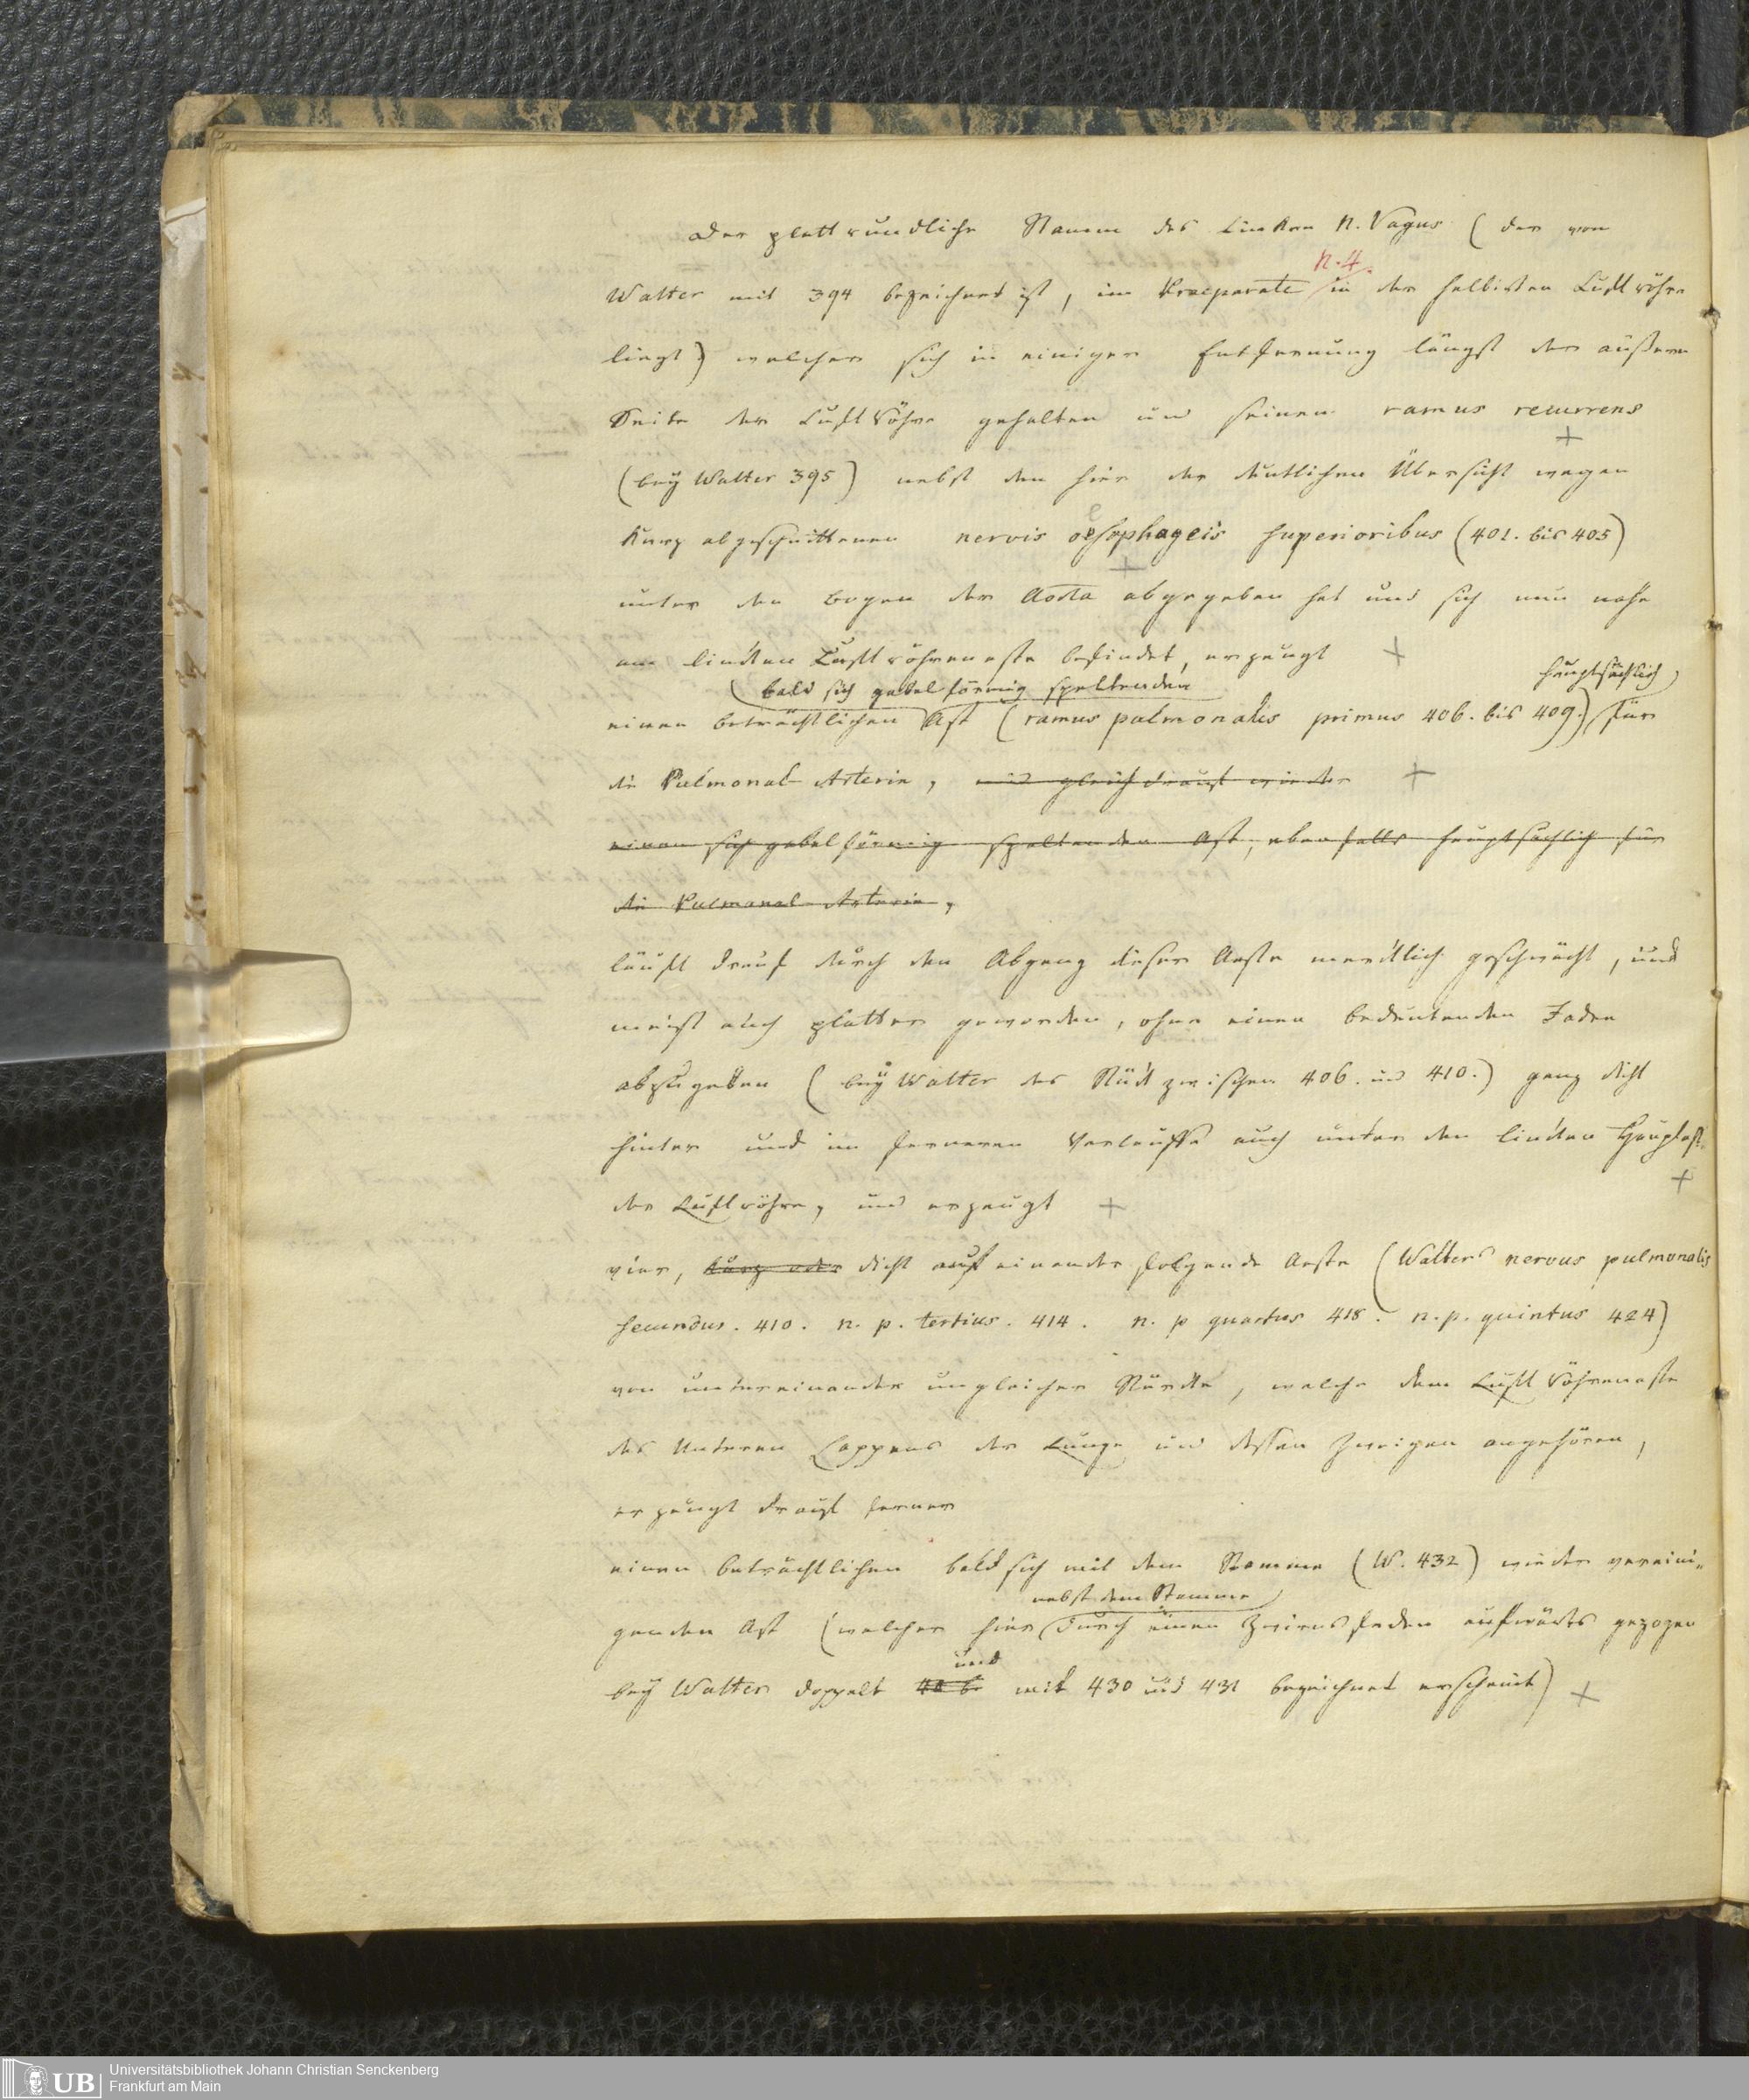 Der plattrundliche Stamm des Linken N. Vagus (der von
n. 4.
Walter mit 394 bezeichnet ist, im Praeparate in der halbirten Luftröhre
liegt) welcher sich in einiger Entfernung längst der äußern
Seite der Luftröhre gehalten und seinen ramus recurrens
(bey Walter 395) nebst den hier der deutlichen Übersicht wegen
kurz abgeschnittenen nervis oesophageis superioribus (401. bis 405)
unter den Bogen der Aorta abgegeben hat und sich nun nahe
am linken Luftröhrenaste befindet, erzeugt
bald sich gabelförmig spaltenden
hauptsächlich
einen beträchtlichen Ast (ramus pulmonalis primus 406. bis 409.) für
die Pulmonal Arterie, und gleich drauf wieder
einen sich gabelförmig spaltenden Ast, ebenfalls hauptsächlich für
die Pulmonal Arterie,
läuft drauf durch den Abgang dieser Aeste merklich geschwächt, und
meist auch platter geworden, ohne einen bedeutenden Faden
abzugeben (bey Walter das Stück zwischen 406. und 410.) ganz dicht
hinter und im ferneren Verlauffe auch unter den linken Hauptast
der Luftröhre, und erzeugt
vier, kurz oder dicht auf einander folgende Aeste (Walters nervus pulmonalis
secundus. 410. n. p. tertius. 414. n. p quartus 418. n. p. quintus 424)
von untereinander ungleicher Stärke, welche dem Luftröhrenaste
des Unteren Lappens der Lunge und dessen Zweigen angehören,
erzeugt drauf ferner
einen beträchtlichen bald sich mit dem Stamme (W. 432) wieder vereini-
nebst dem Stamme
genden Ast (welcher hier durch einen Zwirnsfaden aufwärts gezogen
und
bey Walter doppelt mit 430 und 431 bezeichnet erscheint)
Universitätsbibliothek Johann Christian Senckenberg
Frankfurt am Main
UB